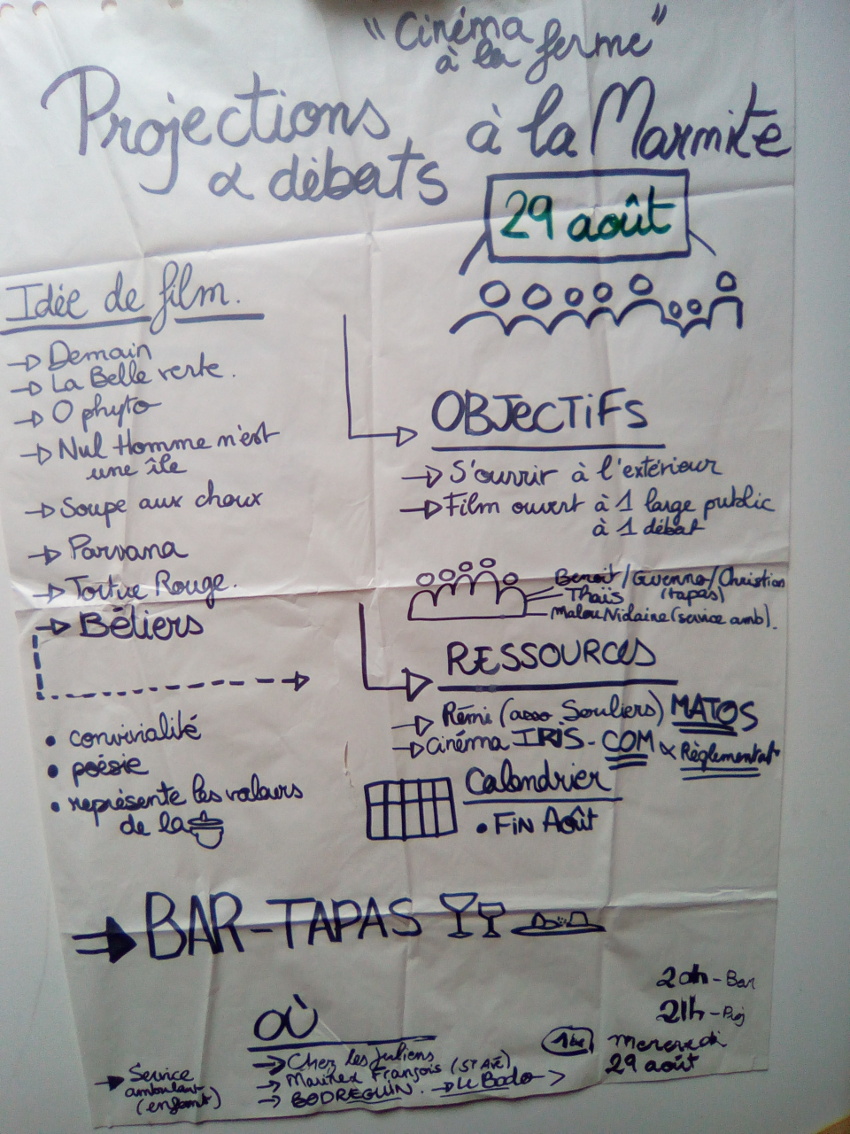 "Cinéma
à la ferme"
Projections à la Marmite
& débats
29 août
Idée de film.
→ Demain
→ La Belle verte.
→ O phyto
→ Nul Homme n'est
une île
→ Soupe aux choux
→ Parvana
→ Tortue Rouge.
→ Béliers
• convivialité
• poésie
• représente les valeurs
de la
OBJECTIFS
→ S'ouvrir à l'extérieur
→ Film ouvert à 1 large public
à 1 débat
Benoit/Gwenno/Christian
Thaïs (tapas)
Malou Nidaine (service amb).
RESSOURCES
→ Rémi (asso Souliers) MATOS
→ Cinéma IRIS - COM & Règlementat°
Calendrier
• Fin Août
→ BAR-TAPAS
20h - Bar
21h - Proj
mercredi
29 août
OÙ
→ Chez les Juliens
→ François (St AVÉ)
→ BODREGUIN. → Le Bodo
→ Service
ambulant
(enfant)